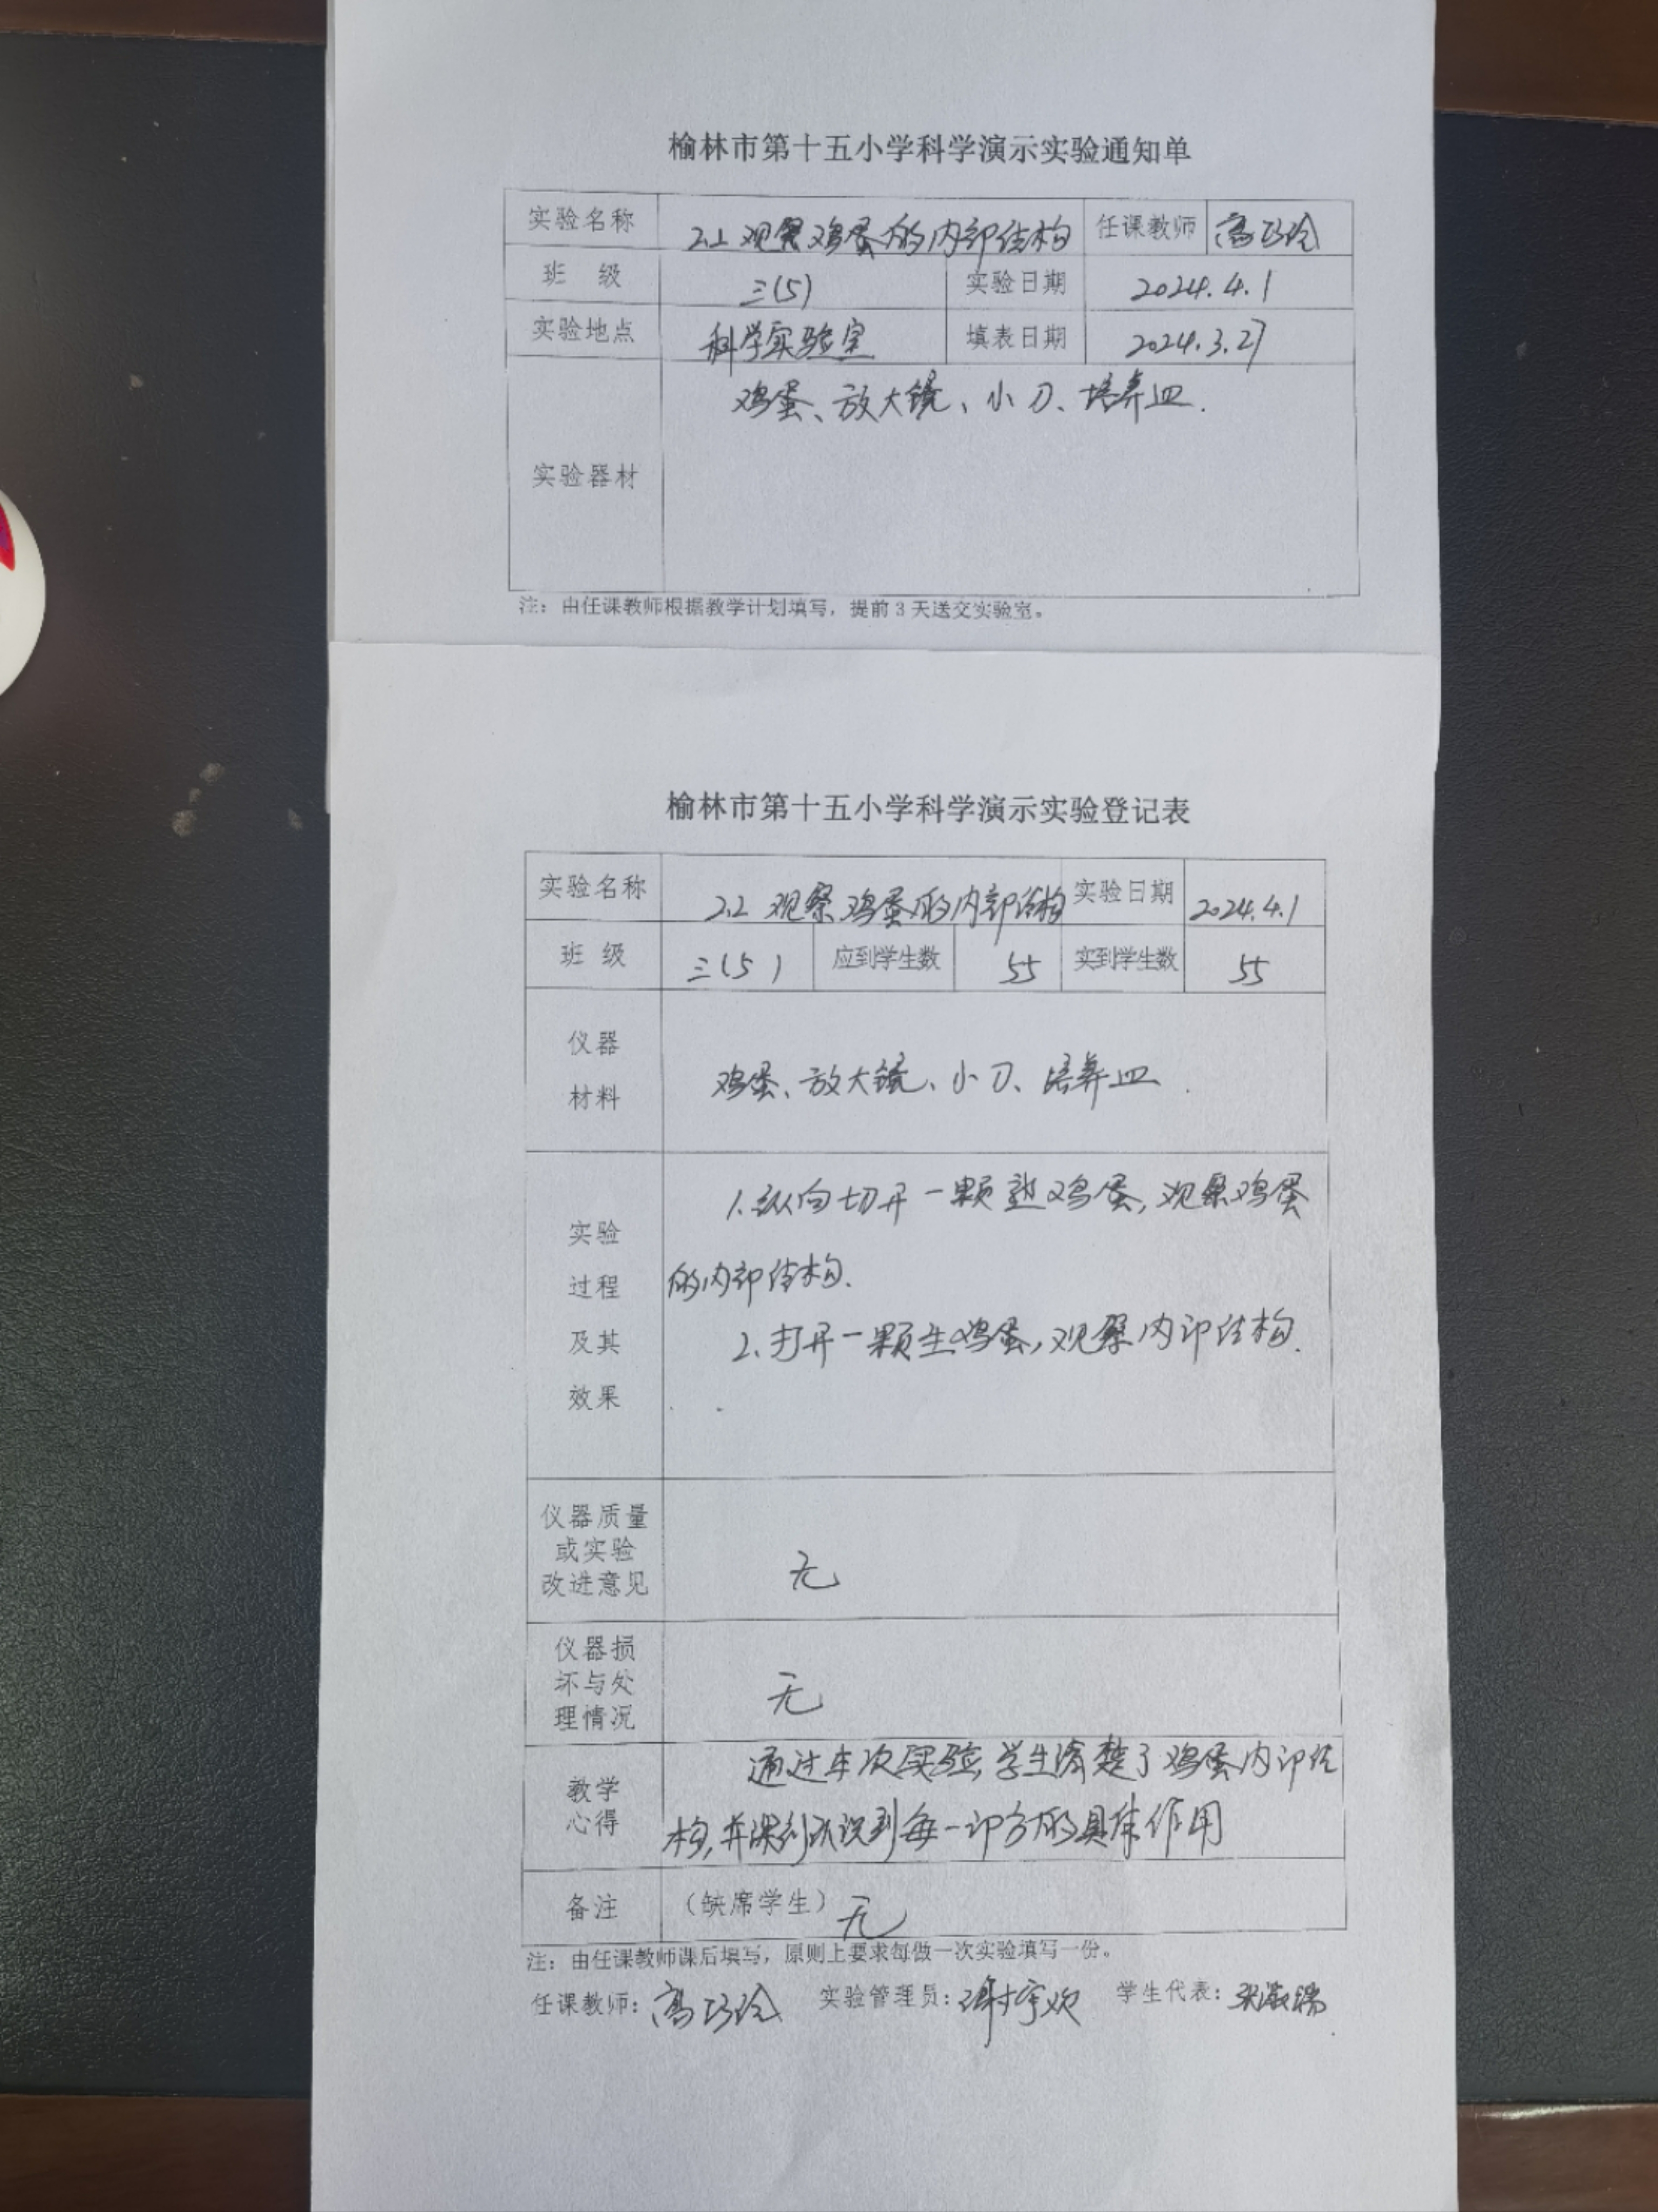 榆林市第十五小学科学演示实验通知单
实验名称 2.2 观察鸡蛋的内部结构 任课教师 高巧玲
班 级 三(5) 实验日期 2024.4.1
实验地点 科学实验室 填表日期 2024.3.27
实验器材 鸡蛋、放大镜、小刀、培养皿.
注：由任课教师根据教学计划填写，提前3天送交实验室。
榆林市第十五小学科学演示实验登记表
实验名称 2.2 观察鸡蛋的内部结构 实验日期 2024.4.1
班 级 三(5) 应到学生数 55 实到学生数 55
仪器
材料
鸡蛋、放大镜、小刀、培养皿.
实验
过程
及其
效果
1.纵向切开一颗熟鸡蛋,观察鸡蛋
的内部结构.
2.打开一颗生鸡蛋,观察内部结构.
仪器质量
或实验
改进意见
无
仪器损
坏与处
理情况
无
教学
心得
通过本次实验,学生清楚了鸡蛋内部结
构,并深刻认识到每一部分的具体作用
备注 （缺席学生） 无
注：由任课教师课后填写，原则上要求每做一次实验填写一份。
任课教师: 高巧玲 实验管理员: 谢宇欢 学生代表: